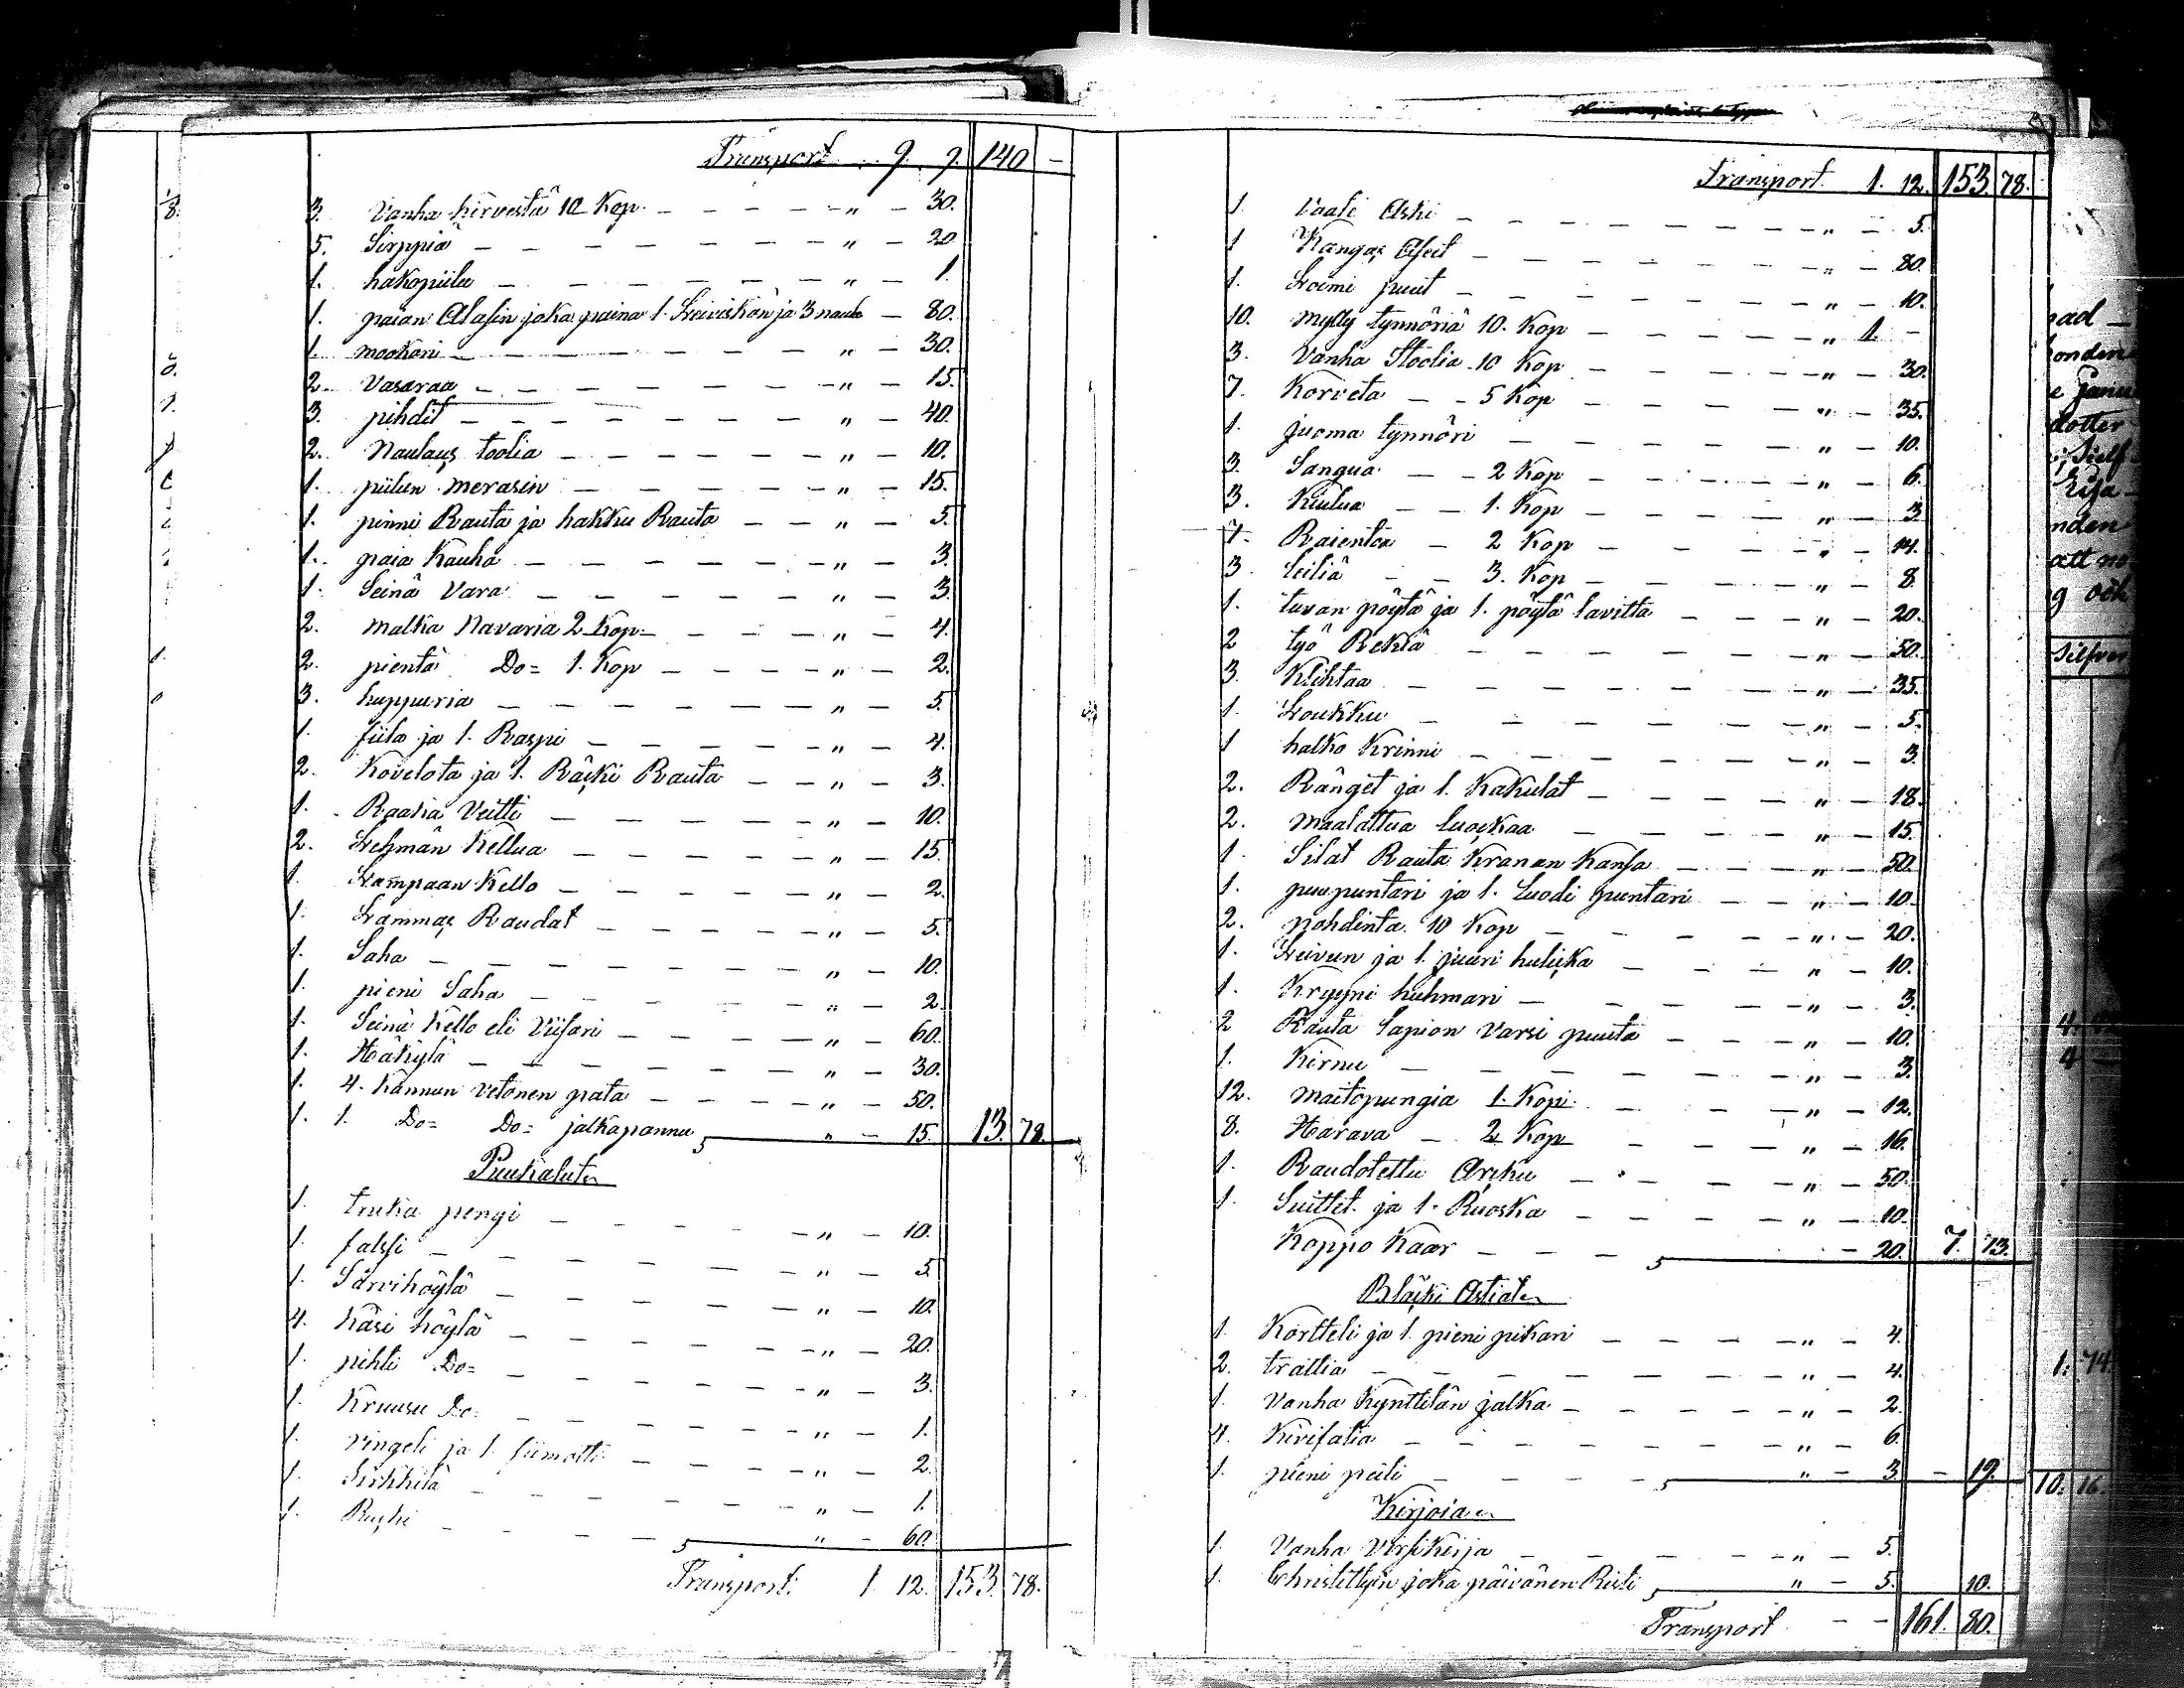 Transport 9. 9. 140 –
3. Vanha kirvestä 10 Kop. – – – – „ – 30.
5. Sirppiä – – – – – „ – 20
1. hakopiilu – – – – – „ – 1.
1. paian Alasin joka paina 1. Leiviskän ja 3 naula – 80.
1. mookari – – – – – „ – 30.
2. Vasaraa – – – – – „ – 15.
3. pihdit – – – – – „ – 40.
2. Naulaus toolia – – – – – „ – 10.
1. piilun merasin – – – – „ – 15.
1. pinni Rauta ja hakku Rauta – – „ – 5.
1. paia Kauha – – – – – „ – 3.
1. Seinä Vara – – – – – „ – 3.
2. malka Navaria 2 Kop – – – – „ – 4.
2. pientä Do= 1. Kop – – – – „ – 2.
3. huppuria – – – – – „ – 5.
1. fiila ja 1. Raspi – – – – „ – 4.
2. Kovelota ja 1. Räçki Rauta – – „ – 3.
1. Raaka Veitti – – – – „ – 10.
2. Lehmän Kellua – – – – „ – 15.
1. Lampaan Kello – – – – „ – 2.
1. Lammas Raudat – – – – „ – 5.
1. Saha – – – – – „ – 10.
1. pieni Saha – – – – „ – 2.
1. Seinä Kello eli Viisari – – – „ – 60.
1. Häkylä – – – – – „ – 30.
1. 4. Kannun vetonen pata – – – „ – 50.
1. 1. Do= Do= jalkapannu „ – 15. 13. 78.
Puukalut
1. truka pengi – – – – „ – 10.
1. falssi – – – – – „ – 5.
1. Sarvihöylä – – – – „ – 10.
4. käsi höylä – – – – „ – 20.
1. pihti Do= – – – – „ – 3.
1. Kruusu Do= – – – – „ – 1.
1. vingeli ja 1. – – – „ – 2.
1. Sirkkilä – – – – „ – 1.
1. – – – – „ – 60.
Transport. 1 12. 153. 78.
Transport. 1. 12. 153. 78.
1. Vaali Aski – – – – – „ – 5.
1 Kangas Aseet – – – – „ – 80.
1. Loimi puut – – – – „ – 10.
10. mylly tynnöriä 10. Kop – – – „ 1. –
3. Vanha Stoolia 10 Kop – – – „ – 30.
7. Korveta – – 5 Kop – – – „ – 35.
1. juoma tynnöri – – – – „ – 10.
3. Sangua – – 2 Kop – – – „ – 6.
3. Kiulua – – 1. Kop – – – „ – 3
7. Raienta – 2 Kop – – – „ – 14.
3. leiliä – – 3. Kop – – – „ – 8.
1. tuvan pöytä ja 1. pöytä lavitta – – „ – 20.
2 työ Rekiä – – – – „ – 50.
3. Klihtaa – – – – „ – 35.
1. Loukku – – – – „ – 5.
1 halko Krinni – – – – „ – 3.
2. Ränget ja 1. Kakulat – – – „ – 18.
2. maalattua luokkaa – – – „ – 15.
1. Silat Rauta Kranan Kansa – – „ – 50.
1. puupuntari ja 1. Luodi puntari – – „ – 10.
2. pohdinta 10 Kop – – – „ – 20.
1. Leivun ja 1. juuri – – – „ – 10.
1. Kryyni huhmari – – – „ – 3.
2 Rauta Lapion Varsi puuta – – – „ – 10.
1. Kirnu – – – – „ – 3.
12. maitopungia 1. Kopi – – – „ – 12.
8. Harava – 2 Kop – – – „ – 16.
1. Raudotettu Arkku – – – „ – 50.
1. Suittet ja 1. Ruoska – – – „ – 10.
Koppo Käär – – – – 20. 7. 73.
Bläcki Astiat
1. Kortteli ja 1. pieni pikari – – – „ – 4.
2. trattia – – – – „ – 4.
1. Vanha Kynttilän jalka – – – „ – 2.
4. Kivifatia – – – – „ – 6.
1. pieni peili – – – „ – 3. – 19.
Kirjoia
1. Vanha Virsikirja – – – „ – 5.
1. Christityin joka päivänen Risti „ – 5. 10.
Transport – – 161. 80.